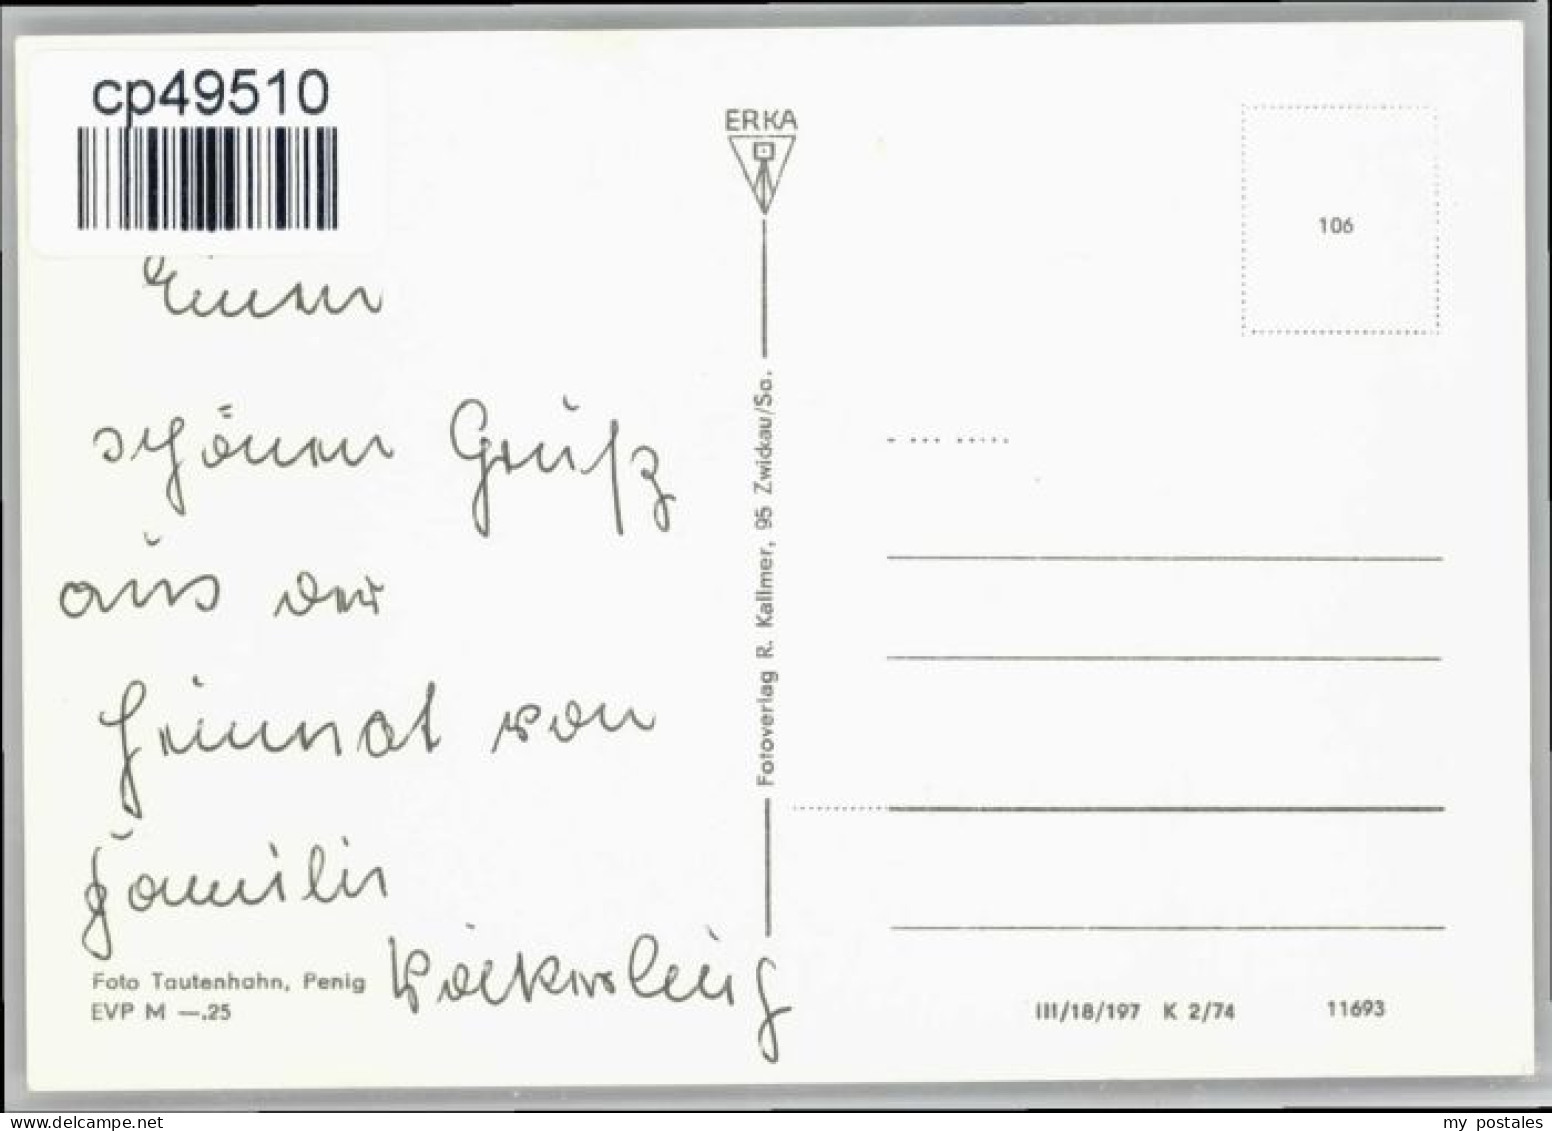 cp49510
ERKA
106
Einen
schönen Gruß
aus der
Heimat von
Familie
Foto Tautenhahn, Penig
EVP M —.25
Fotoverlag R. Kallmer, 95 Zwickau/Sa.
III/18/197 K 2/74 11693
www.delcampe.net
my postales